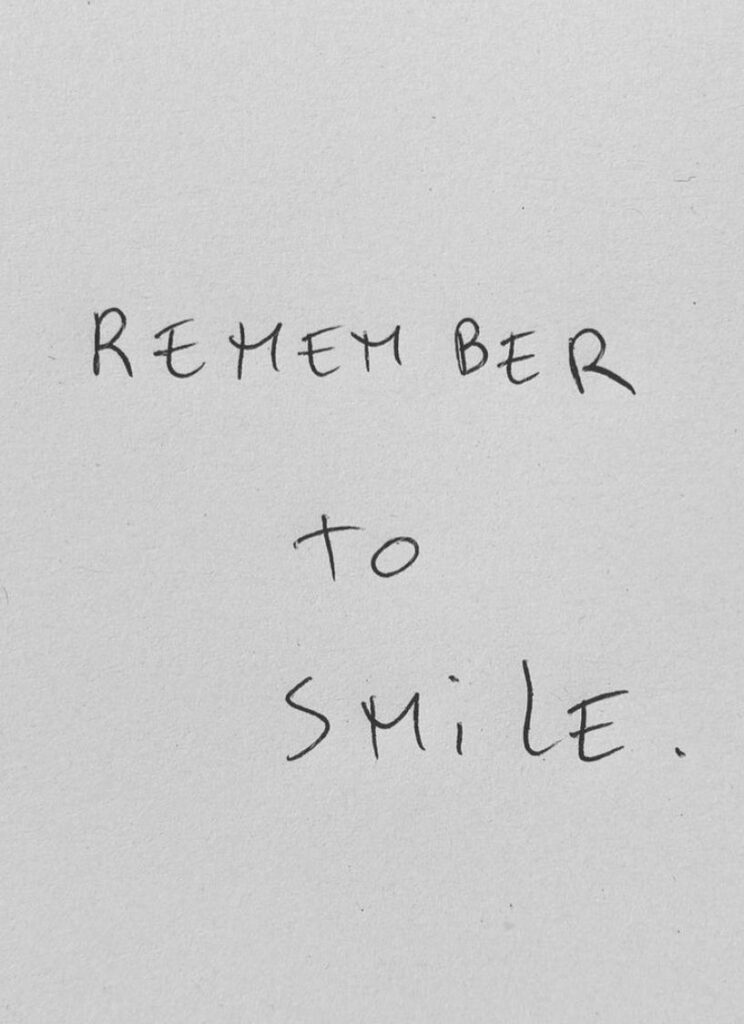 REMEMBER
TO
SMiLE.